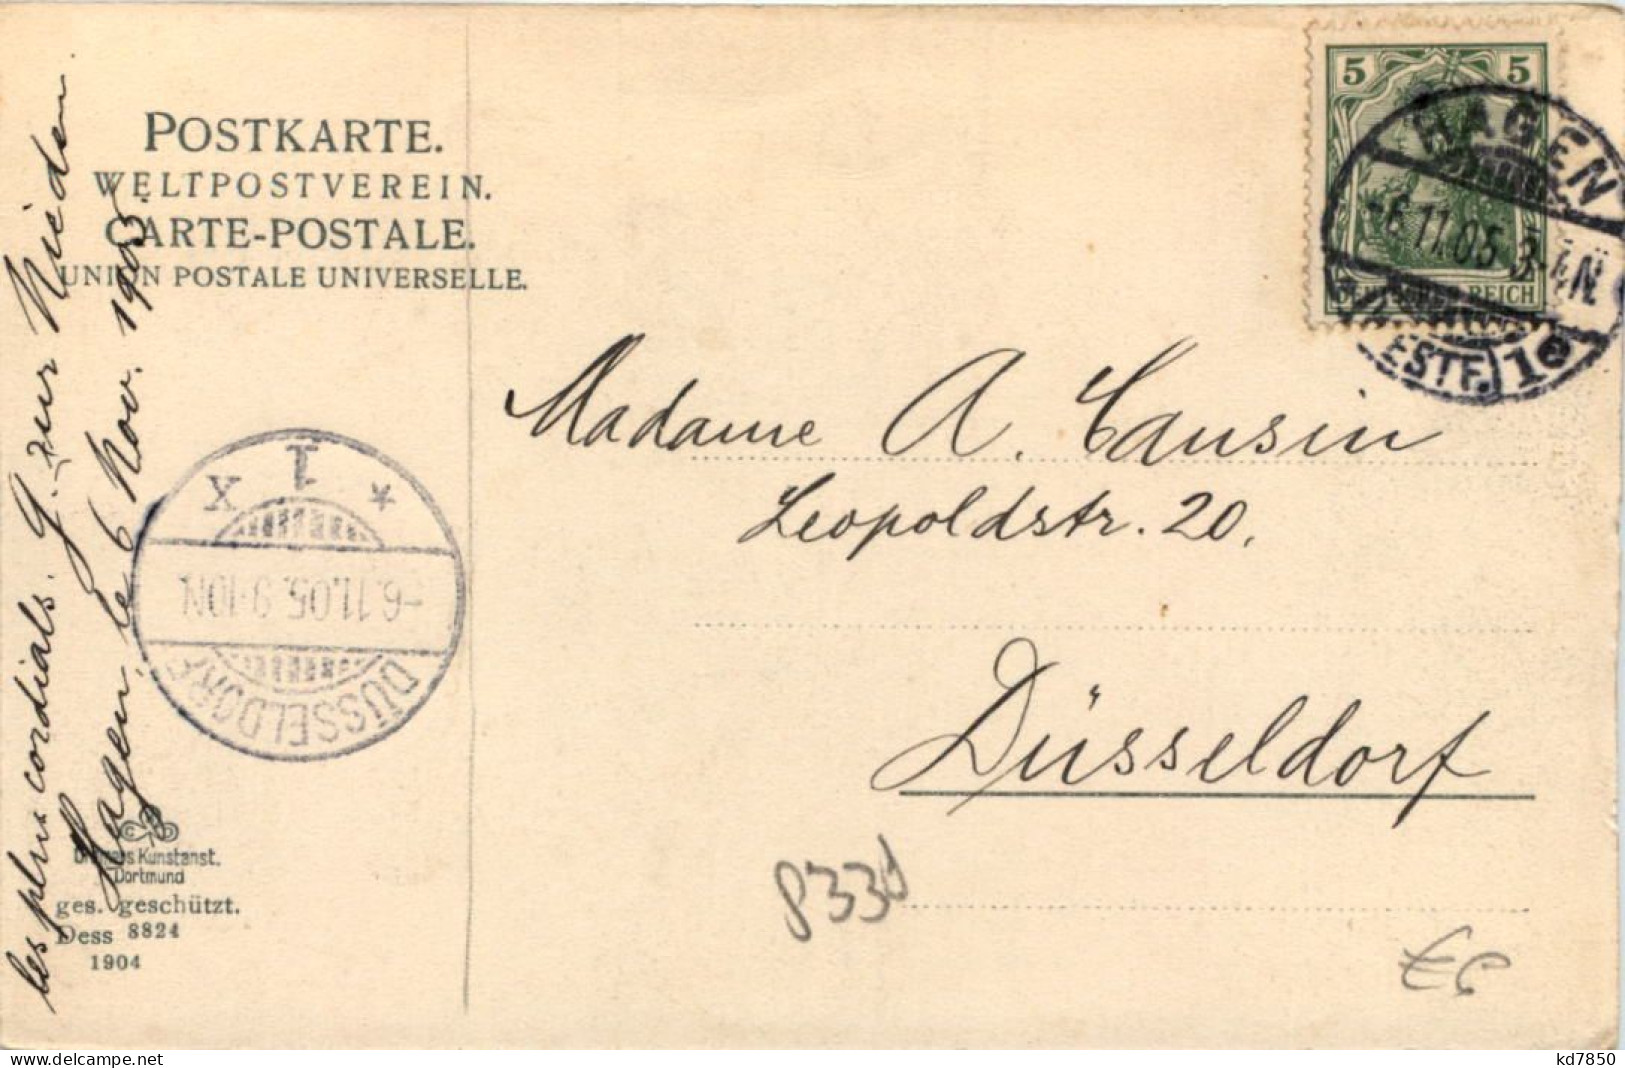 POSTKARTE.
WELTPOSTVEREIN.
CARTE-POSTALE.
UNION POSTALE UNIVERSELLE.
les plus cordials. G. zur Nieden
Hagen, le 6 Nov. 1905.
5 5
DEUTSCHES REICH
HAGEN
-6.11.05.3-4N
WESTF. 1
Madame A. Causin
Leopoldstr. 20.
Düsseldorf
1
X *
-6.11.05.9-10N
DÜSSELDORF
Kunstanst.
Dortmund
ges. geschützt.
Dess 8824
1904
delcampe.net
kd7850